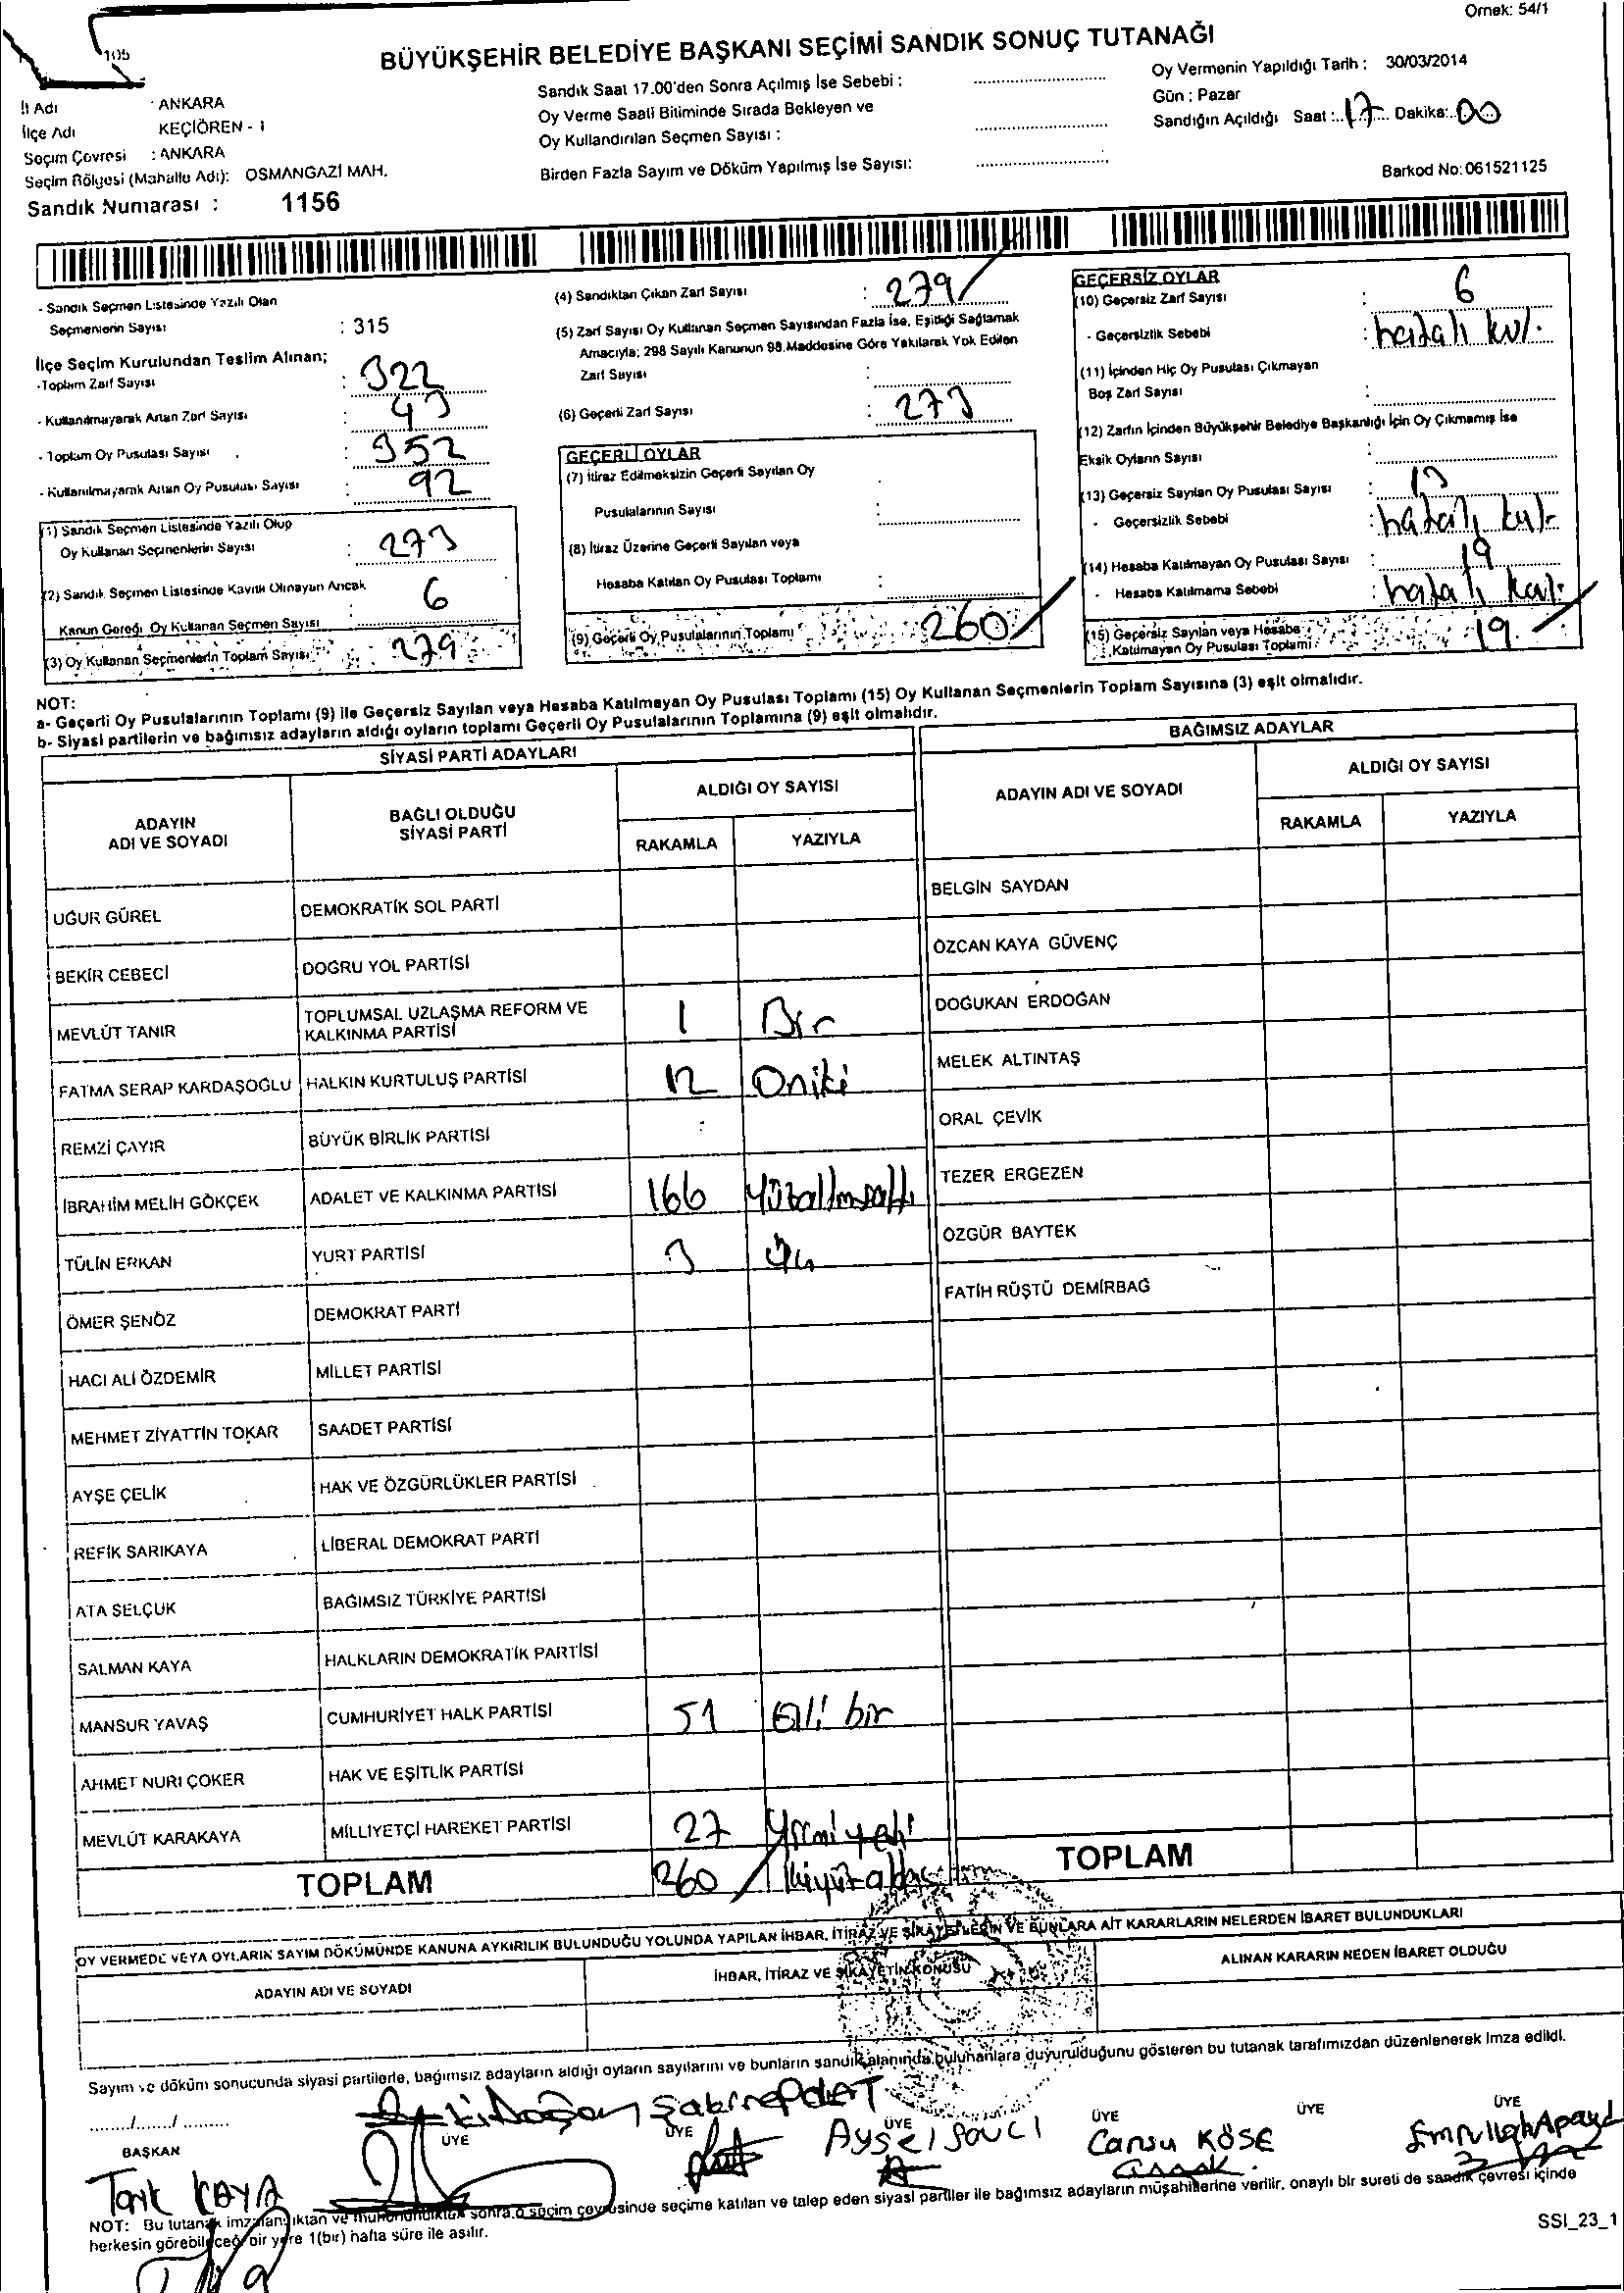 Örnek: 54/1
105
BÜYÜKŞEHİR BELEDİYE BAŞKANI SEÇİMİ SANDIK SONUÇ TUTANAĞI
İl Adı : ANKARA
İlçe Adı KEÇİÖREN - 1
Seçim Çevresi : ANKARA
Seçim Bölgesi (Mahalle Adı): OSMANGAZİ MAH.
Sandık Numarası : 1156
Sandık Saat 17.00'den Sonra Açılmış İse Sebebi :
Oy Verme Saati Bitiminde Sırada Bekleyen ve
Oy Kullandırılan Seçmen Sayısı :
Birden Fazla Sayım ve Döküm Yapılmış İse Sayısı:
Oy Vermenin Yapıldığı Tarih : 30/03/2014
Gün : Pazar
Sandığın Açıldığı Saat : 17 Dakika: 00
Barkod No: 061521125
- Sandık Seçmen Listesinde Yazılı Olan
Seçmenlerin Sayısı : 315
İlçe Seçim Kurulundan Teslim Alınan;
-Toplam Zarf Sayısı : 322
- Kullanılmayarak Artan Zarf Sayısı : 43
- Toplam Oy Pusulası Sayısı : 352
- Kullanılmayarak Artan Oy Pusulası Sayısı : 92
(1) Sandık Seçmen Listesinde Yazılı Olup
Oy Kullanan Seçmenlerin Sayısı : 273
(2) Sandık Seçmen Listesinde Kayıtlı Olmayan Ancak
Kanun Gereği Oy Kullanan Seçmen Sayısı : 6
(3) Oy Kullanan Seçmenlerin Toplam Sayısı : 279
(4) Sandıktan Çıkan Zarf Sayısı : 279
(5) Zarf Sayısı Oy Kullanan Seçmen Sayısından Fazla İse, Eşitliği Sağlamak
Amacıyla; 298 Sayılı Kanunun 98.Maddesine Göre Yakılarak Yok Edilen
Zarf Sayısı :
(6) Geçerli Zarf Sayısı : 273
GEÇERLİ OYLAR
(7) İtiraz Edilmeksizin Geçerli Sayılan Oy
Pusulalarının Sayısı :
(8) İtiraz Üzerine Geçerli Sayılan veya
Hesaba Katılan Oy Pusulası Toplamı :
(9) Geçerli Oy Pusulalarının Toplamı : 260
GEÇERSİZ OYLAR
(10) Geçersiz Zarf Sayısı : 6
- Geçersizlik Sebebi : hatalı kul.
(11) İçinden Hiç Oy Pusulası Çıkmayan
Boş Zarf Sayısı :
(12) Zarfın İçinden Büyükşehir Belediye Başkanlığı İçin Oy Çıkmamış İse
Eksik Oyların Sayısı :
(13) Geçersiz Sayılan Oy Pusulası Sayısı : 13
- Geçersizlik Sebebi : hatalı kul.
(14) Hesaba Katılmayan Oy Pusulası Sayısı : 19
- Hesaba Katılmama Sebebi : hatalı kul.
(15) Geçersiz Sayılan veya Hesaba
Katılmayan Oy Pusulası Toplamı : 19
NOT:
a- Geçerli Oy Pusulalarının Toplamı (9) ile Geçersiz Sayılan veya Hesaba Katılmayan Oy Pusulası Toplamı (15) Oy Kullanan Seçmenlerin Toplam Sayısına (3) eşit olmalıdır.
b- Siyasi partilerin ve bağımsız adayların aldığı oyların toplamı Geçerli Oy Pusulalarının Toplamına (9) eşit olmalıdır.
SİYASİ PARTİ ADAYLARI
ADAYIN ADI VE SOYADI BAĞLI OLDUĞU SİYASİ PARTİ ALDIĞI OY SAYISI
RAKAMLA YAZIYLA
UĞUR GÜREL DEMOKRATİK SOL PARTİ
BEKİR CEBECİ DOĞRU YOL PARTİSİ
MEVLÜT TANIR TOPLUMSAL UZLAŞMA REFORM VE KALKINMA PARTİSİ 1 Bir
FATMA SERAP KARDAŞOĞLU HALKIN KURTULUŞ PARTİSİ 12 Oniki
REMZİ ÇAYIR BÜYÜK BİRLİK PARTİSİ
İBRAHİM MELİH GÖKÇEK ADALET VE KALKINMA PARTİSİ 166 Yüzaltmışaltı
TÜLİN ERKAN YURT PARTİSİ 3 Üç
ÖMER ŞENÖZ DEMOKRAT PARTİ
HACI ALİ ÖZDEMİR MİLLET PARTİSİ
MEHMET ZİYATTİN TOKAR SAADET PARTİSİ
AYŞE ÇELİK HAK VE ÖZGÜRLÜKLER PARTİSİ
REFİK SARIKAYA LİBERAL DEMOKRAT PARTİ
ATA SELÇUK BAĞIMSIZ TÜRKİYE PARTİSİ
SALMAN KAYA HALKLARIN DEMOKRATİK PARTİSİ
MANSUR YAVAŞ CUMHURİYET HALK PARTİSİ 51 Elli bir
AHMET NURİ ÇOKER HAK VE EŞİTLİK PARTİSİ
MEVLÜT KARAKAYA MİLLİYETÇİ HAREKET PARTİSİ 27 Yirmi yedi
TOPLAM 260 İkiyüzaltmış
BAĞIMSIZ ADAYLAR
ADAYIN ADI VE SOYADI ALDIĞI OY SAYISI
RAKAMLA YAZIYLA
BELGİN SAYDAN
ÖZCAN KAYA GÜVENÇ
DOĞUKAN ERDOĞAN
MELEK ALTINTAŞ
ORAL ÇEVİK
TEZER ERGEZEN
ÖZGÜR BAYTEK
FATİH RÜŞTÜ DEMİRBAĞ
TOPLAM
OY VERMEDE VEYA OYLARIN SAYIM DÖKÜMÜNDE KANUNA AYKIRILIK BULUNDUĞU YOLUNDA YAPILAN İHBAR, İTİRAZ VE ŞİKAYETLERİN VE BUNLARA AİT KARARLARIN NELERDEN İBARET BULUNDUKLARI
ADAYIN ADI VE SOYADI İHBAR, İTİRAZ VE ŞİKAYETİN KONUSU ALINAN KARARIN NEDEN İBARET OLDUĞU
Sayım ve döküm sonucunda siyasi partilerle, bağımsız adayların aldığı oyların sayılarını ve bunların sandık alanında bulunanlara duyurulduğunu gösteren bu tutanak tarafımızdan düzenlenerek imza edildi.
..../..../.........
BAŞKAN ÜYE ÜYE ÜYE ÜYE ÜYE ÜYE
Tarık KAYA Aysel Savcı Cansu KÖSE
NOT: Bu tutanak imzalandıktan ve mühürlendikten sonra o seçim çevresinde seçime katılan ve talep eden siyasi partiler ile bağımsız adayların müşahitlerine verilir, onaylı bir sureti de sandık çevresi içinde
herkesin görebileceği bir yere 1(bir) hafta süre ile asılır.
SSI_23_1